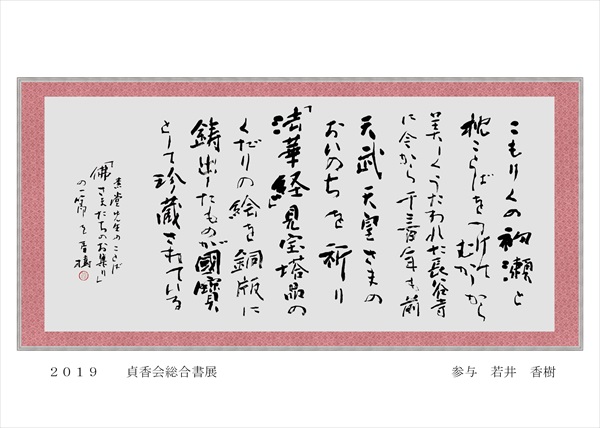 こもりくの初瀬と
枕ことばをつけて むかしから
美しくうたわれた長谷寺
に今から千三百年も前
天武天皇さまの
おいのちを祈り
「法華経」見宝塔品の
くだりの絵を銅版に
鋳出したものが國寶
として珍蔵されている
先生のことば
「佛さまたちのお集り」
の一節を 香樹
２０１９　貞香会総合書展
参与　若井　香樹